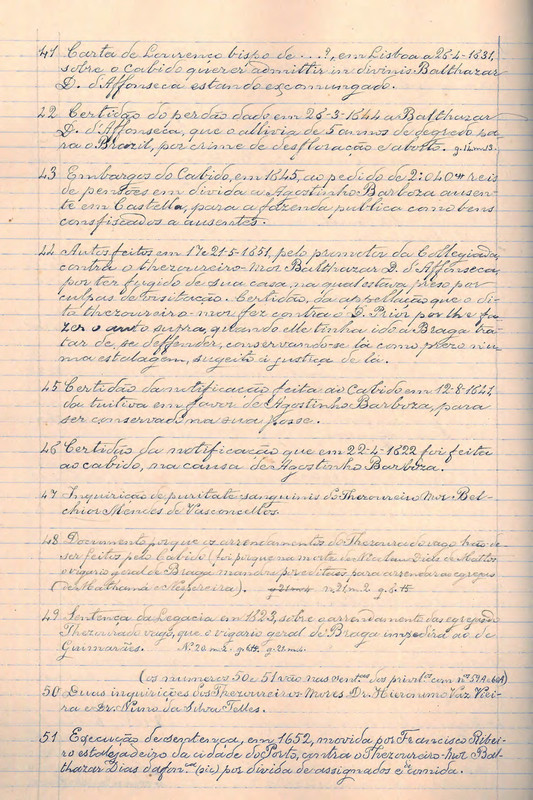 41 Carta de Lourenço bispo de ...?, em Lisboa a 26-4-1631,
sobre o Cabido querer admittir in divinis Balthazar
D. d'Affonseca estando excomungado.
42 Certidão do perdão dado em 26-3-1644 a Balthazar
D. d'Affonseca, que o allivia de 5 annos de degredo pa-
ra o Brazil, por crime de desfloração e aborto.
43 Embargos do Cabido, em 1645, ao pedido de 2:040 reis
de pensões em divida a Agostinho Barboza ausen-
te em Castella, para a fazenda publica como bens
confiscados a ausentes.
44 Autos feitos em 17 e 21-5-1651, pelo promotor da Collegiada,
contra o thezoureiro-Mor Balthazar D. d'Affonseca,
por ter fugido de sua casa, na qual estava preso por
culpas de visitação. Certidão, da appellação que o di-
to thezoureiro-mor fez contra o D. Prior por lhe fa-
zer o auto supra, quando elle tinha ido a Braga tra-
tar de, se deffender, conservando-se lá como prezo nu-
ma estalagem, sugeito á justiça de lá.
45 Certidão da notificação feita ao Cabido em 12-8-1641,
da tuitiva em favor de Agostinho Barboza, para
ser conservado na sua posse.
46 Certidão da notificação que em 22-4-1622 foi feita
ao cabido, na causa de Agostinho Barboza.
47 Inquirição de puritate sanguinis do Thezoureiro Mor Bel-
chior Mendes de Vasconcellos.
48 Documento porque os arrendamentos do Thezourado vago hão de
ser feitos pelo Cabido (foi porque na morte de Nicolau Dias de Mattos
o vigario geral de Braga mandou por editaes, para arrendar as egrejas
(de Mathamá e Nespereira). n. 21 m. 2 g. 6.15
49 Sentença da Legacia em 1623, sobre o arrendamento das egrejas do
Thezourado vago, que o vigario geral de Braga impedira ao de
Guimarães. N. 20. m. 2
(os numeros 50 e 51 vão nas sent.ças dos privil.os com n.os 59A e 60A)
50 Duas inquirições dos Thezoureiros-Mores Dr. Hieronimo Vaz Viei-
ra e Dr. Nuno da Silva Telles.
51 Execução de sentença, em 1652, movida por Francisco Ribei-
ro estalajadeiro da cidade do Porto, contra o Thezoureiro-Mor Bal-
thazar Dias dafon.ca (sic) por divida de assignados e de comida.